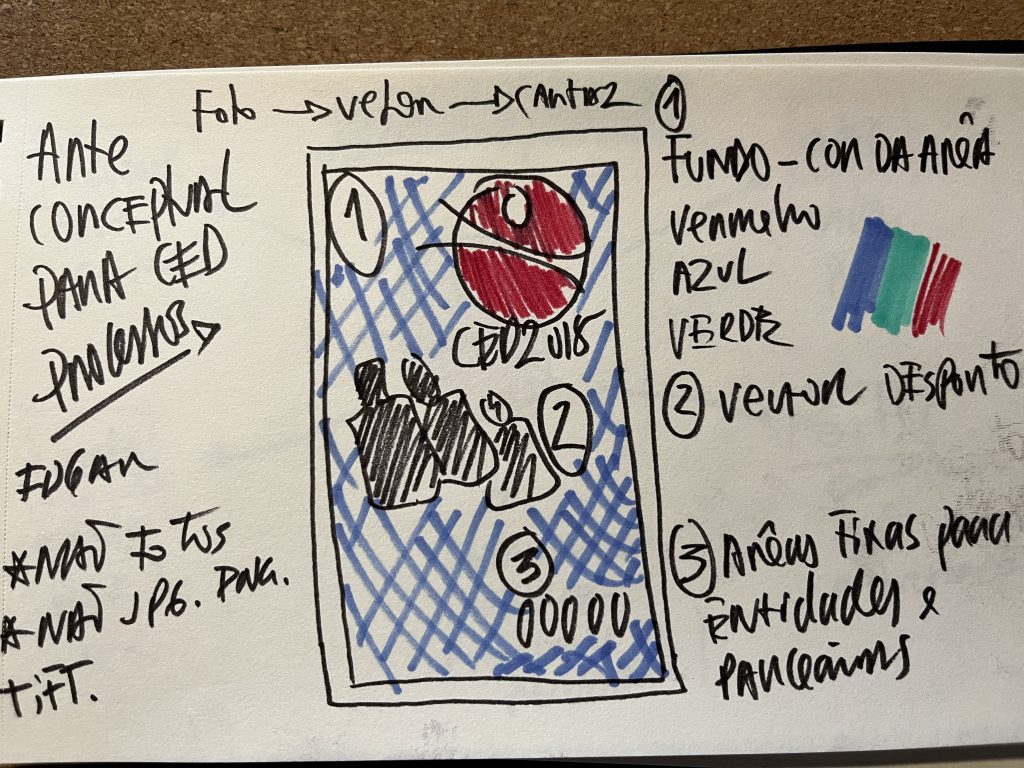 Foto → vetor → CARTAZ
ARTE
CONCEPTUAL
PARA CED
PROCESSOS
EDGAR
*NÃO FOTOS
*NÃO JPG. PNG.
TIFF.
1
CED2018
2
3
00000
1
FUNDO - COR DA ÁREA
VERMELHO
AZUL
VERDE
2 VECTOR DESPORTO
3 ÁREAS FIXAS PARA
ENTIDADES E
PARCEIROS